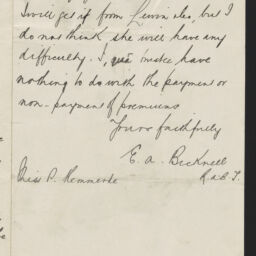 I will get it from Lewin also, but I
do not think she will have any
difficulty. I, quâ trustee have
nothing to do with the payment or
non-payment of premiums
Yours faithfully
E. A. Bicknell
Miss P. Hemmerde